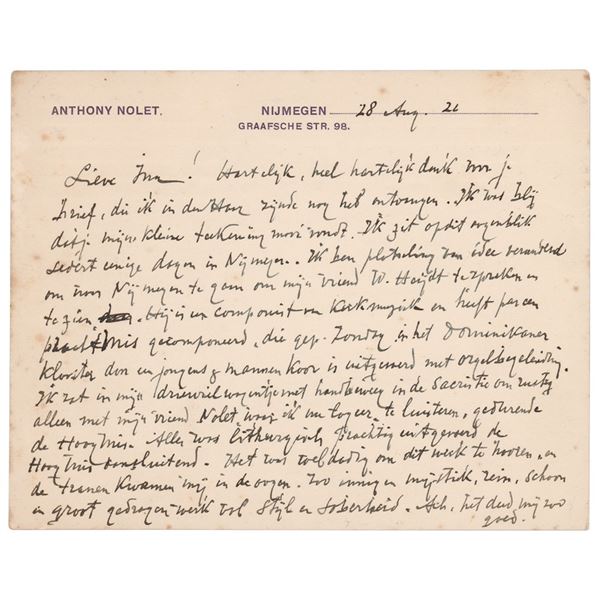 ANTHONY NOLET.
NIJMEGEN 28 Aug. 21
GRAAFSCHE STR. 98.
Lieve Ina! Hartelijk, heel hartelijk dank voor je
brief, die ik in den Haag zijnde nog heb ontvangen. Ik was blij
dat je mijn kleine teekening mooi vondt. Ik zit op dit oogenblik
sedert eenige dagen in Nijmegen. Ik ben plotseling van idee veranderd
om naar Nijmegen te gaan om mijn vriend W. Heijdt te spreken en
te zien. Hij is een componist van Kerkmuziek en heeft pas een
prachtmis gecomponeerd, die gep. Zondag in het Dominikaner
klooster door een jongens & mannenkoor is uitgevoerd met orgelbegeleiding.
Ik zat in mijn driewielwagentje met handbeweeg in de Sacristie om rustig
alleen met mijn vriend Nolet, waar ik nu logeer te luisteren, gedurende
de Hoogmis. Alles was lithurgisch prachtig uitgevoerd de
Hoogmis aansluitend. Het was weldadig om dit werk te hooren, en
de tranen kwamen mij in de oogen. Zoo innig en mystiek, rein, schoon
en groot gedragen werk vol stijl en soberheid. Ach, het deed mij zoo
goed.